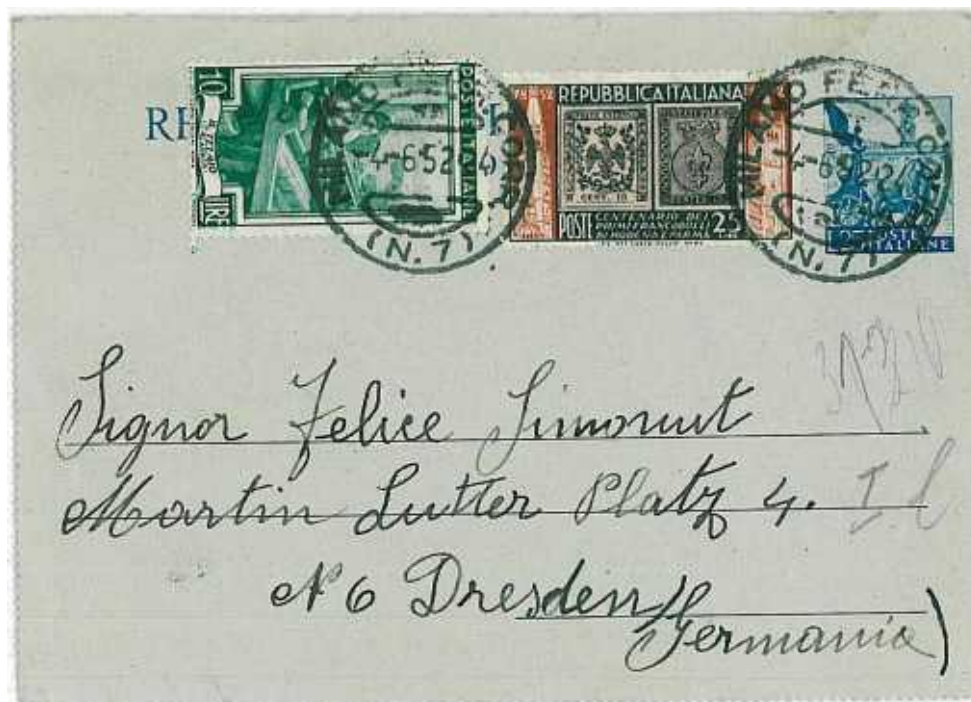 10 LIRE
POSTE ITALIANE
REPUBBLICA ITALIANA
POSTE CENTENARIO DEI PRIMI FRANCOBOLLI DI MODENA E PARMA 25
POSTE ITALIANE
MILANO
4-6 52
(N. 7)
MILANO
4-6 52
(N. 7)
Signor Felice Simonut
Martin Lutter Platz 4.
N 6 Dresden
(Germania)